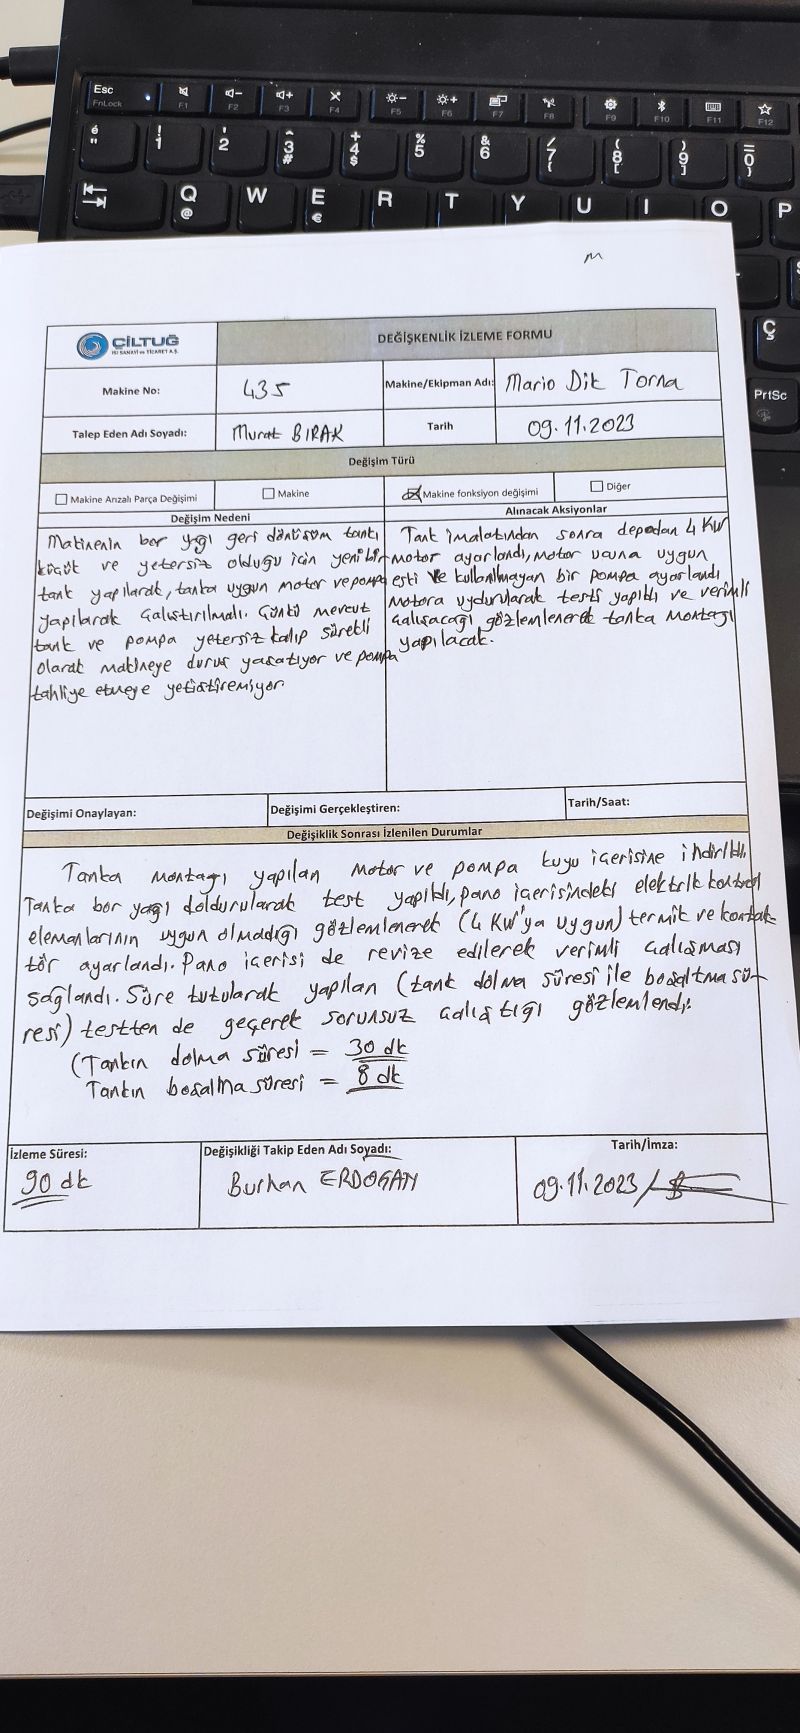 Esc
FnLock
F1
F2
F3
F4
F5
F6
F7
F8
F9
F10
F11
F12
é
"
!
1
'
2
^
3
#
+
4
$
%
5
&
6
/
7
{
(
8
[
)
9
]
=
0
}
Q
@
W
E
€
R
T
Y
U
I
O
P
Ç
PrtSc
M
ÇİLTUĞ
ISI SANAYİ ve TİCARET A.Ş.
DEĞİŞKENLİK İZLEME FORMU
Makine No: 435 Makine/Ekipman Adı: Mario Dik Torna
Talep Eden Adı Soyadı: Murat BIRAK Tarih 09.11.2023
Değişim Türü
Makine Arızalı Parça Değişimi Makine Makine fonksiyon değişimi Diğer
Değişim Nedeni
Makinenin bor yağı geri dönüşüm tankı
küçük ve yetersiz olduğu için yeni bir
tank yapılarak, tanka uygun motor ve pompa
yapılarak çalıştırılmalı. Çünkü mevcut
tank ve pompa yetersiz kalıp sürekli
olarak makineye duruş yaşatıyor ve pompa
tahliye etmeye yetiştiremiyor.
Alınacak Aksiyonlar
Tank imalatından sonra depodan 4 KW
motor ayarlandı, motor ucuna uygun
eski ve kullanılmayan bir pompa ayarlandı
motora uydurularak testi yapıldı ve verimli
çalışacağı gözlemlenerek tanka montajı
yapılacak.
Değişimi Onaylayan: Değişimi Gerçekleştiren: Tarih/Saat:
Değişiklik Sonrası İzlenilen Durumlar
Tanka montajı yapılan motor ve pompa kuyu içerisine indirildi.
Tanka bor yağı doldurularak test yapıldı, pano içerisindeki elektrik kontrol
elemanlarının uygun olmadığı gözlemlenerek (4 KW'ya uygun) termik ve kontak-
tör ayarlandı. Pano içerisi de revize edilerek verimli çalışması
sağlandı. Süre tutularak yapılan (tank dolma süresi ile boşaltma sü-
resi) testten de geçerek sorunsuz çalıştığı gözlemlendi.
(Tankın dolma süresi = 30 dk
Tankın boşalma süresi = 8 dk
İzleme Süresi: Değişikliği Takip Eden Adı Soyadı: Tarih/İmza:
90 dk Burhan ERDOĞAN 09.11.2023 /